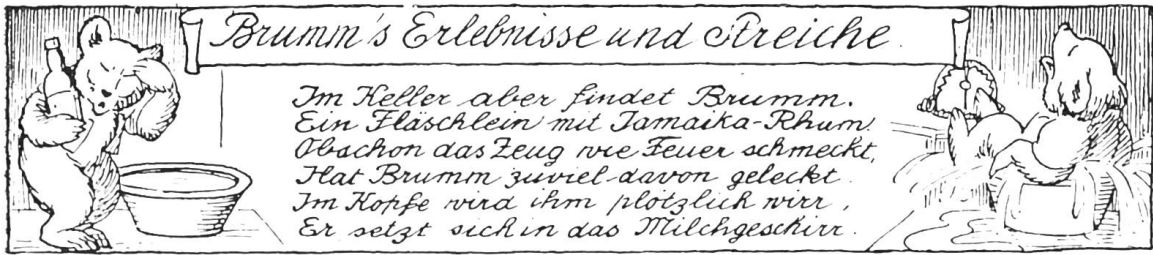 Brumm's Erlebnisse und Streiche.
Im Keller aber findet Brumm.
Ein Fläschlein mit Jamaika-Rhum.
Obschon das Zeug wie Feuer schmeckt,
Hat Brumm zuviel davon geleckt.
Im Kopfe wird ihm plötzlich wirr,
Er setzt sich in das Milchgeschirr.